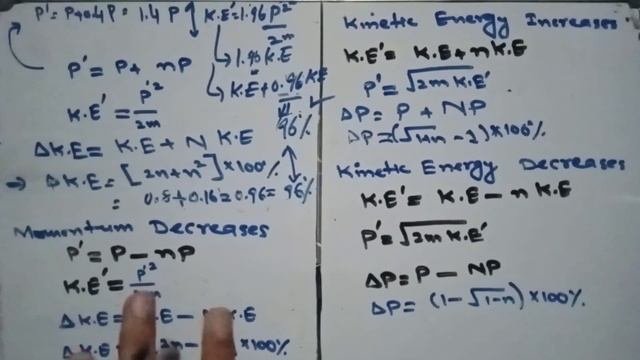 P' = P+0.4P = 1.4 P
K.E' = 1.96 P²/2m
1.96 K.E
K.E + 0.96 K.E
96%
P' = P + nP
K.E' = P'²/2m
ΔK.E = K.E + N K.E
⇒ ΔK.E = [2n+n²] × 100%
= 0.8 + 0.16 = 0.96 = 96%
Momentum Decreases
P' = P - nP
K.E' = P'²
ΔK.E = K.E
ΔK.E × 100%
Kinetic Energy Increases
K.E' = K.E + n K.E
P' = √2m K.E'
ΔP = P + NP
× 100%
Kinetic Energy Decreases
K.E' = K.E - n K.E
P' = √2m K.E'
ΔP = P - NP
ΔP = (1 - √1-n) × 100%